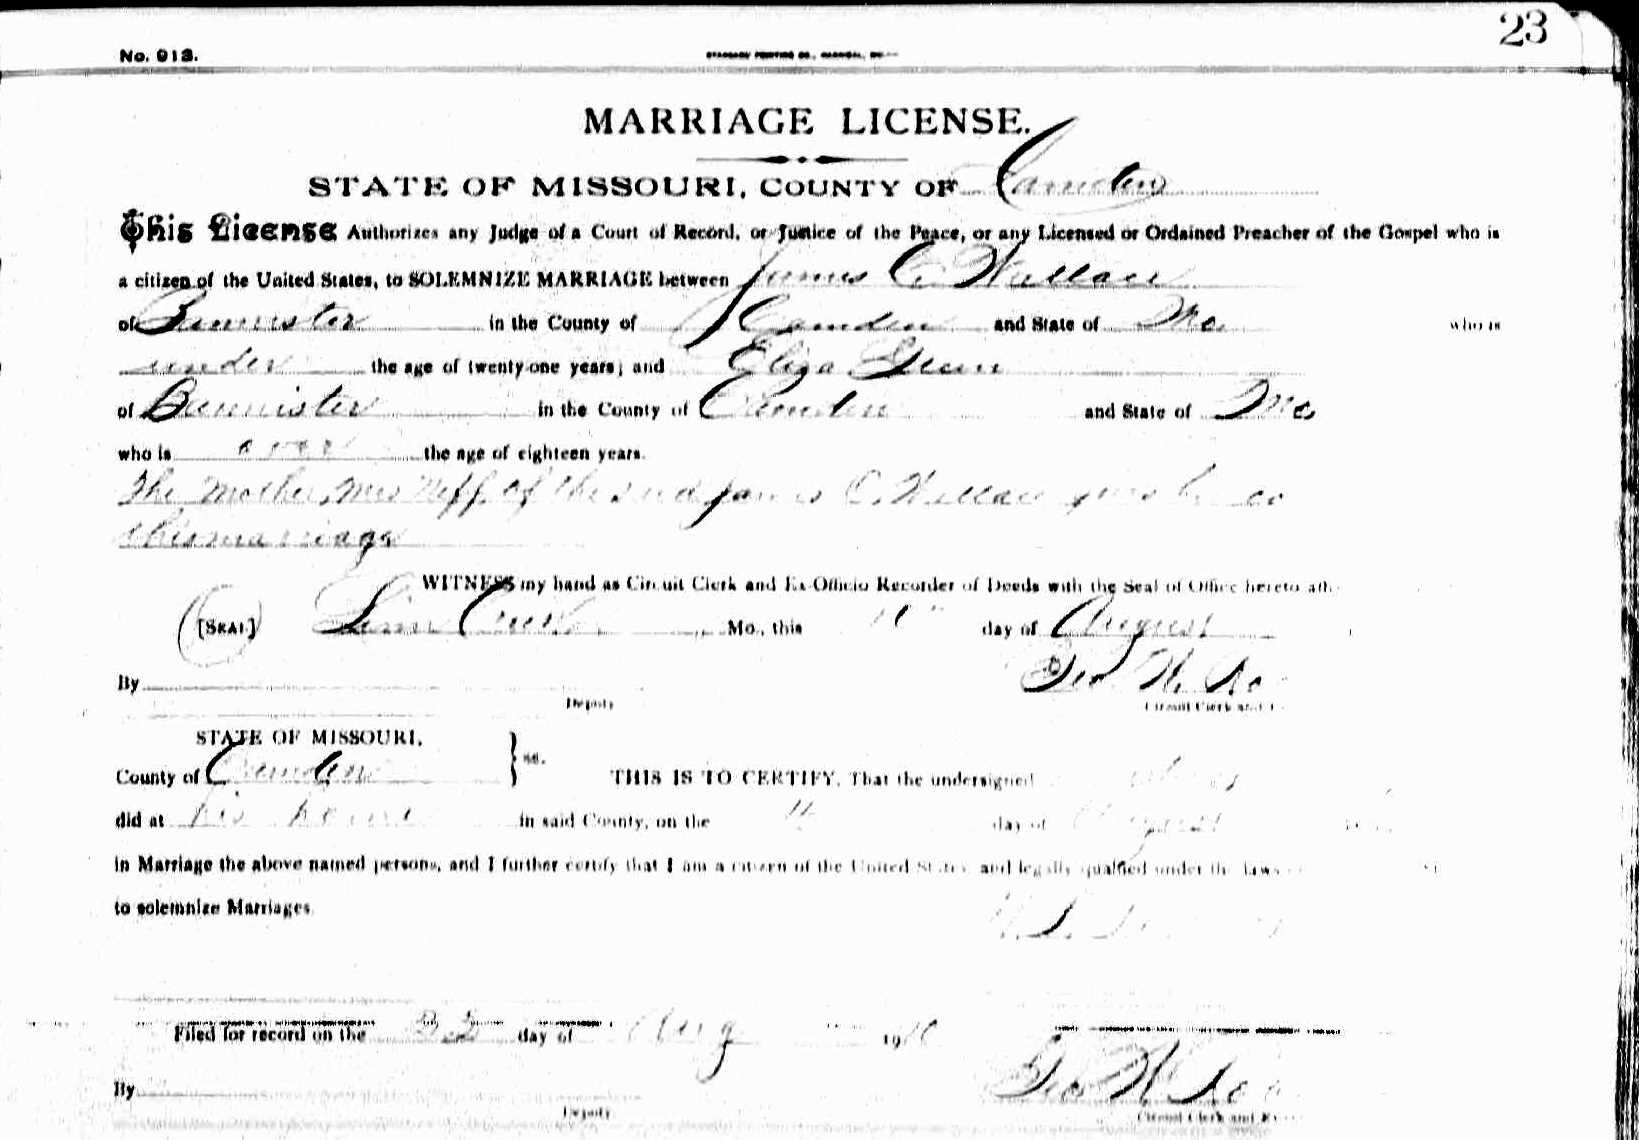 23
No. 913.
MARRIAGE LICENSE.
STATE OF MISSOURI, COUNTY OF Camden
This License Authorizes any Judge of a Court of Record, or Justice of the Peace, or any Licensed or Ordained Preacher of the Gospel who is
a citizen of the United States, to SOLEMNIZE MARRIAGE between James C. Wallace
of Bannister in the County of Camden and State of Mo. who is
under the age of twenty-one years; and Eliza
of Bannister in the County of Camden and State of Mo
who is over the age of eighteen years.
The Mother, Mrs Neff of the said James C. Wallace
this marriage
WITNESS my hand as Circuit Clerk and Ex-Officio Recorder of Deeds with the Seal of Office hereto
[SEAL] Linn Creek Mo., this day of August
Geo W.
By
Deputy Circuit Clerk and
STATE OF MISSOURI,
County of Camden } ss. THIS IS TO CERTIFY, That the undersigned
did at his home in said County, on the day of August
in Marriage the above named persons, and I further certify that I am a citizen of the United States and legally qualified under the laws
to solemnize Marriages.
Filed for record on the 22 day of Aug 19
Geo W.
By
Deputy Circuit Clerk and